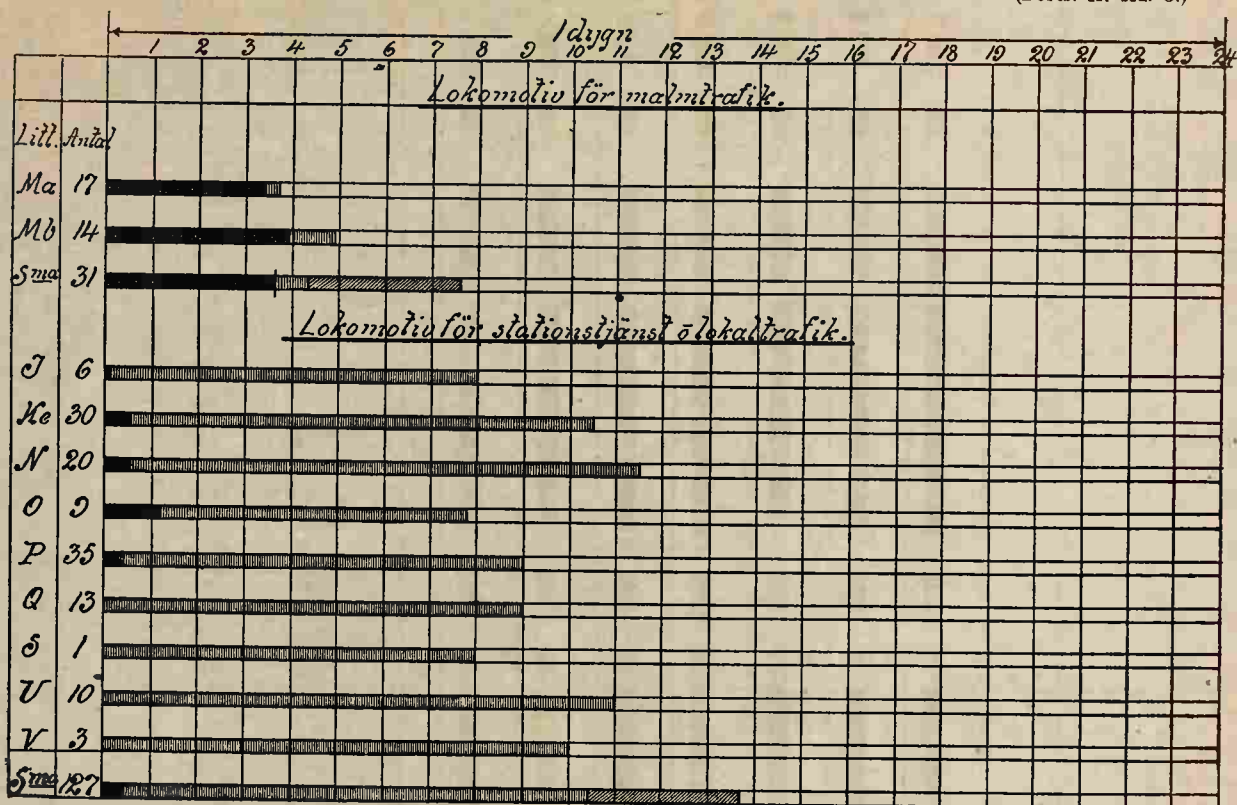 1 dygn
1 2 3 4 5 6 7 8 9 10 11 12 13 14 15 16 17 18 19 20 21 22 23 24
Lokomotiv för malmtrafik.
Litt. Antal
Ma 17
Mb 14
Sma 31
Lokomotiv för stationstjänst o lokaltrafik.
J 6
Ke 30
N 20
O 9
P 35
Q 13
S 1
U 10
V 3
Sma 127